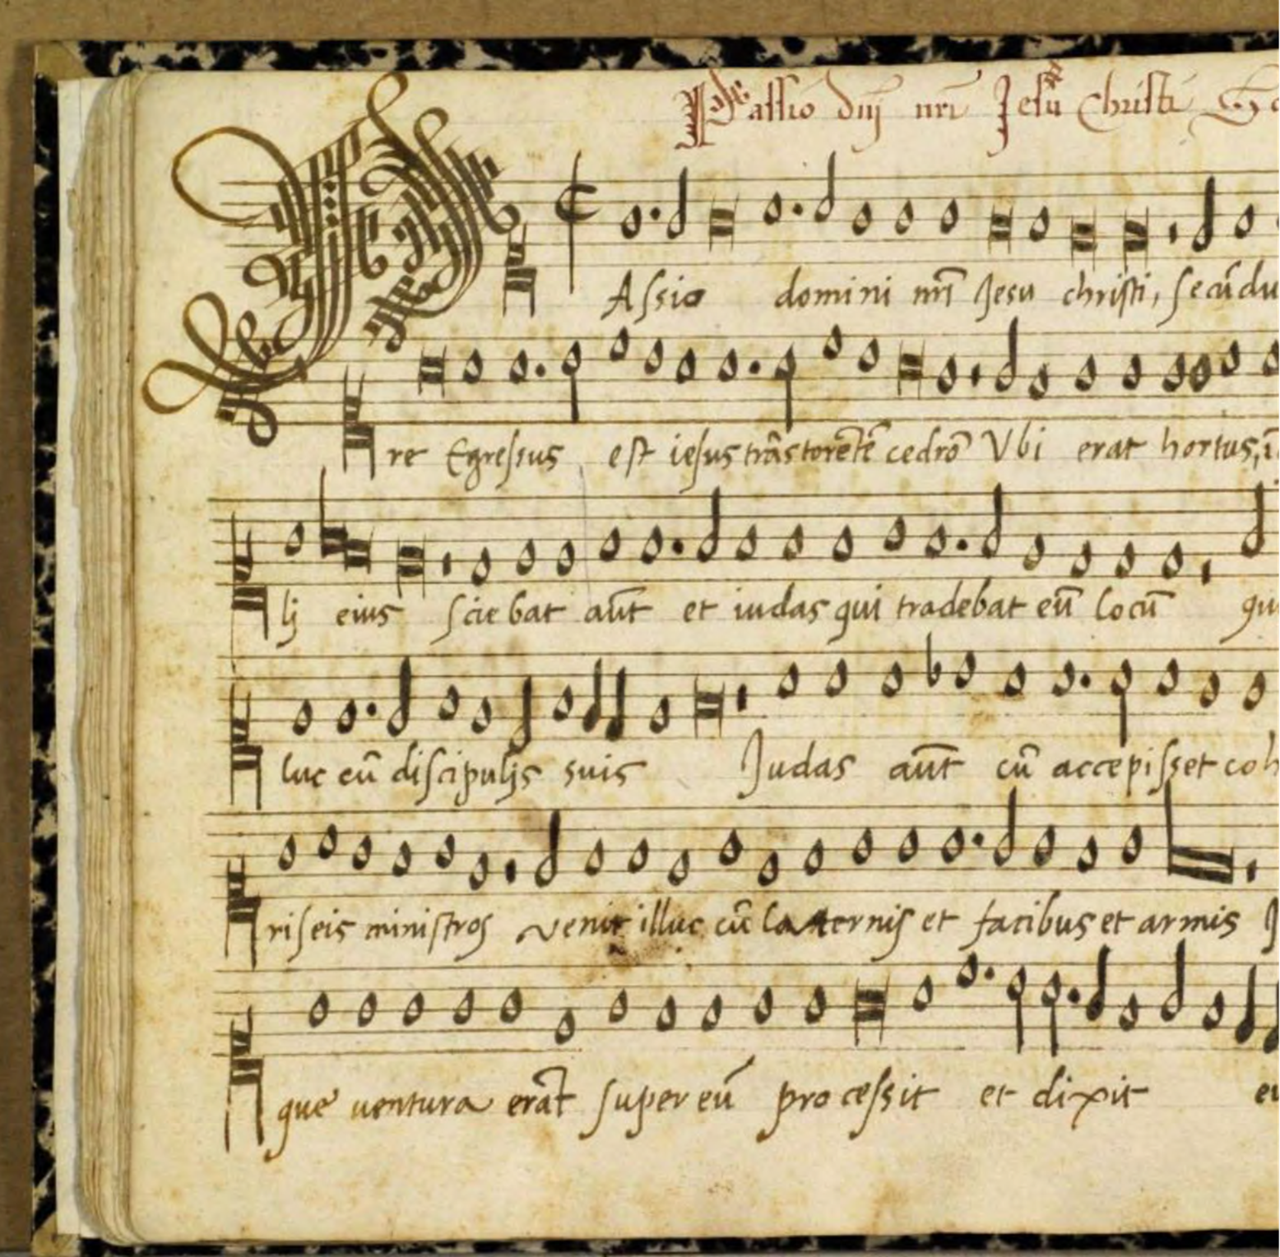 Passio dnj nri Jesu Christi Se
PAssio domini nr̄i Jesu christi, secūdu
re Egressus est iesus trāstorētē cedrō Vbi erat hortus, ī
lj eius sciebat aūt et iudas qui tradebat eū locū qu
luc cū discipuljs suis Judas aūt cū accepisset coh
riseis ministros venit illuc cū laternis et facibus et armis J
que ventura erāt super eū processit et dixit ei